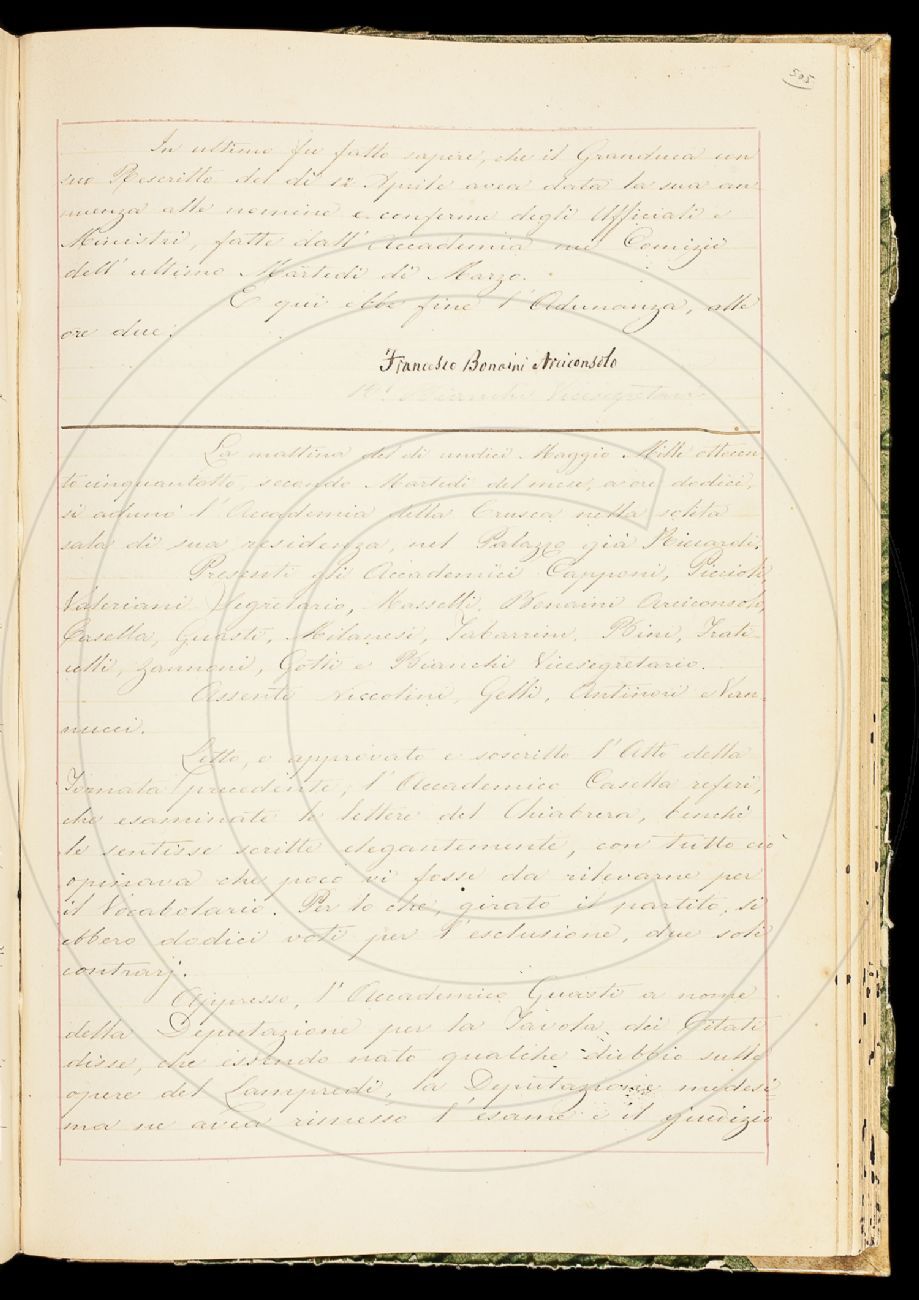 505
In ultimo fu fatto sapere, che il Granduca con
suo Rescritto del dì 12 Aprile avea data la sua an-
nuenza alle nomine e conferme degli Ufficiali e
Ministri, fatte dall'Accademia nei Comizii
dell'ultimo Martedì di Marzo.
E qui ebbe fine l'Adunanza, alle
ore due.
Francesco Bonaini Arciconsolo
Bianchi Vicesegretario
La mattina del dì undici Maggio Mille ottocen
to cinquantotto, secondo Martedì del mese, a ore dodici,
si adunò l'Accademia della Crusca nella solita
sala di sua residenza, nel Palazzo già Riccardi.
Presenti gli Accademici Capponi, Piccioli,
Valeriani Segretario, Masselli, Bonaini Arciconsolo,
Casella, Guasti, Milanesi, Tabarrini, Bini, Frati-
celli, Zannoni, Gotti e Bianchi Vicesegretario.
Assenti Niccolini, Gelli, Antinori e Van-
nucci.
Letto, e approvato e soscritto l'Atto della
Tornata precedente; l'Accademico Casella referì,
che esaminate le lettere del Chiabrera, benchè
le sentisse scritte elegantemente, con tutto ciò
opinava che poco vi fosse da rilevarne per
il Vocabolario. Per lo che, girato il partito, si
ebbero dodici voti per l'esclusione, due soli
contrarj.
Appresso, l'Accademico Guasti a nome
della Deputazione per la Tavola dei Citati
disse, che essendo nato qualche dubbio sulle
opere del Lampredi, la Deputazione medesi
ma ne avea rimesso l'esame e il giudizio